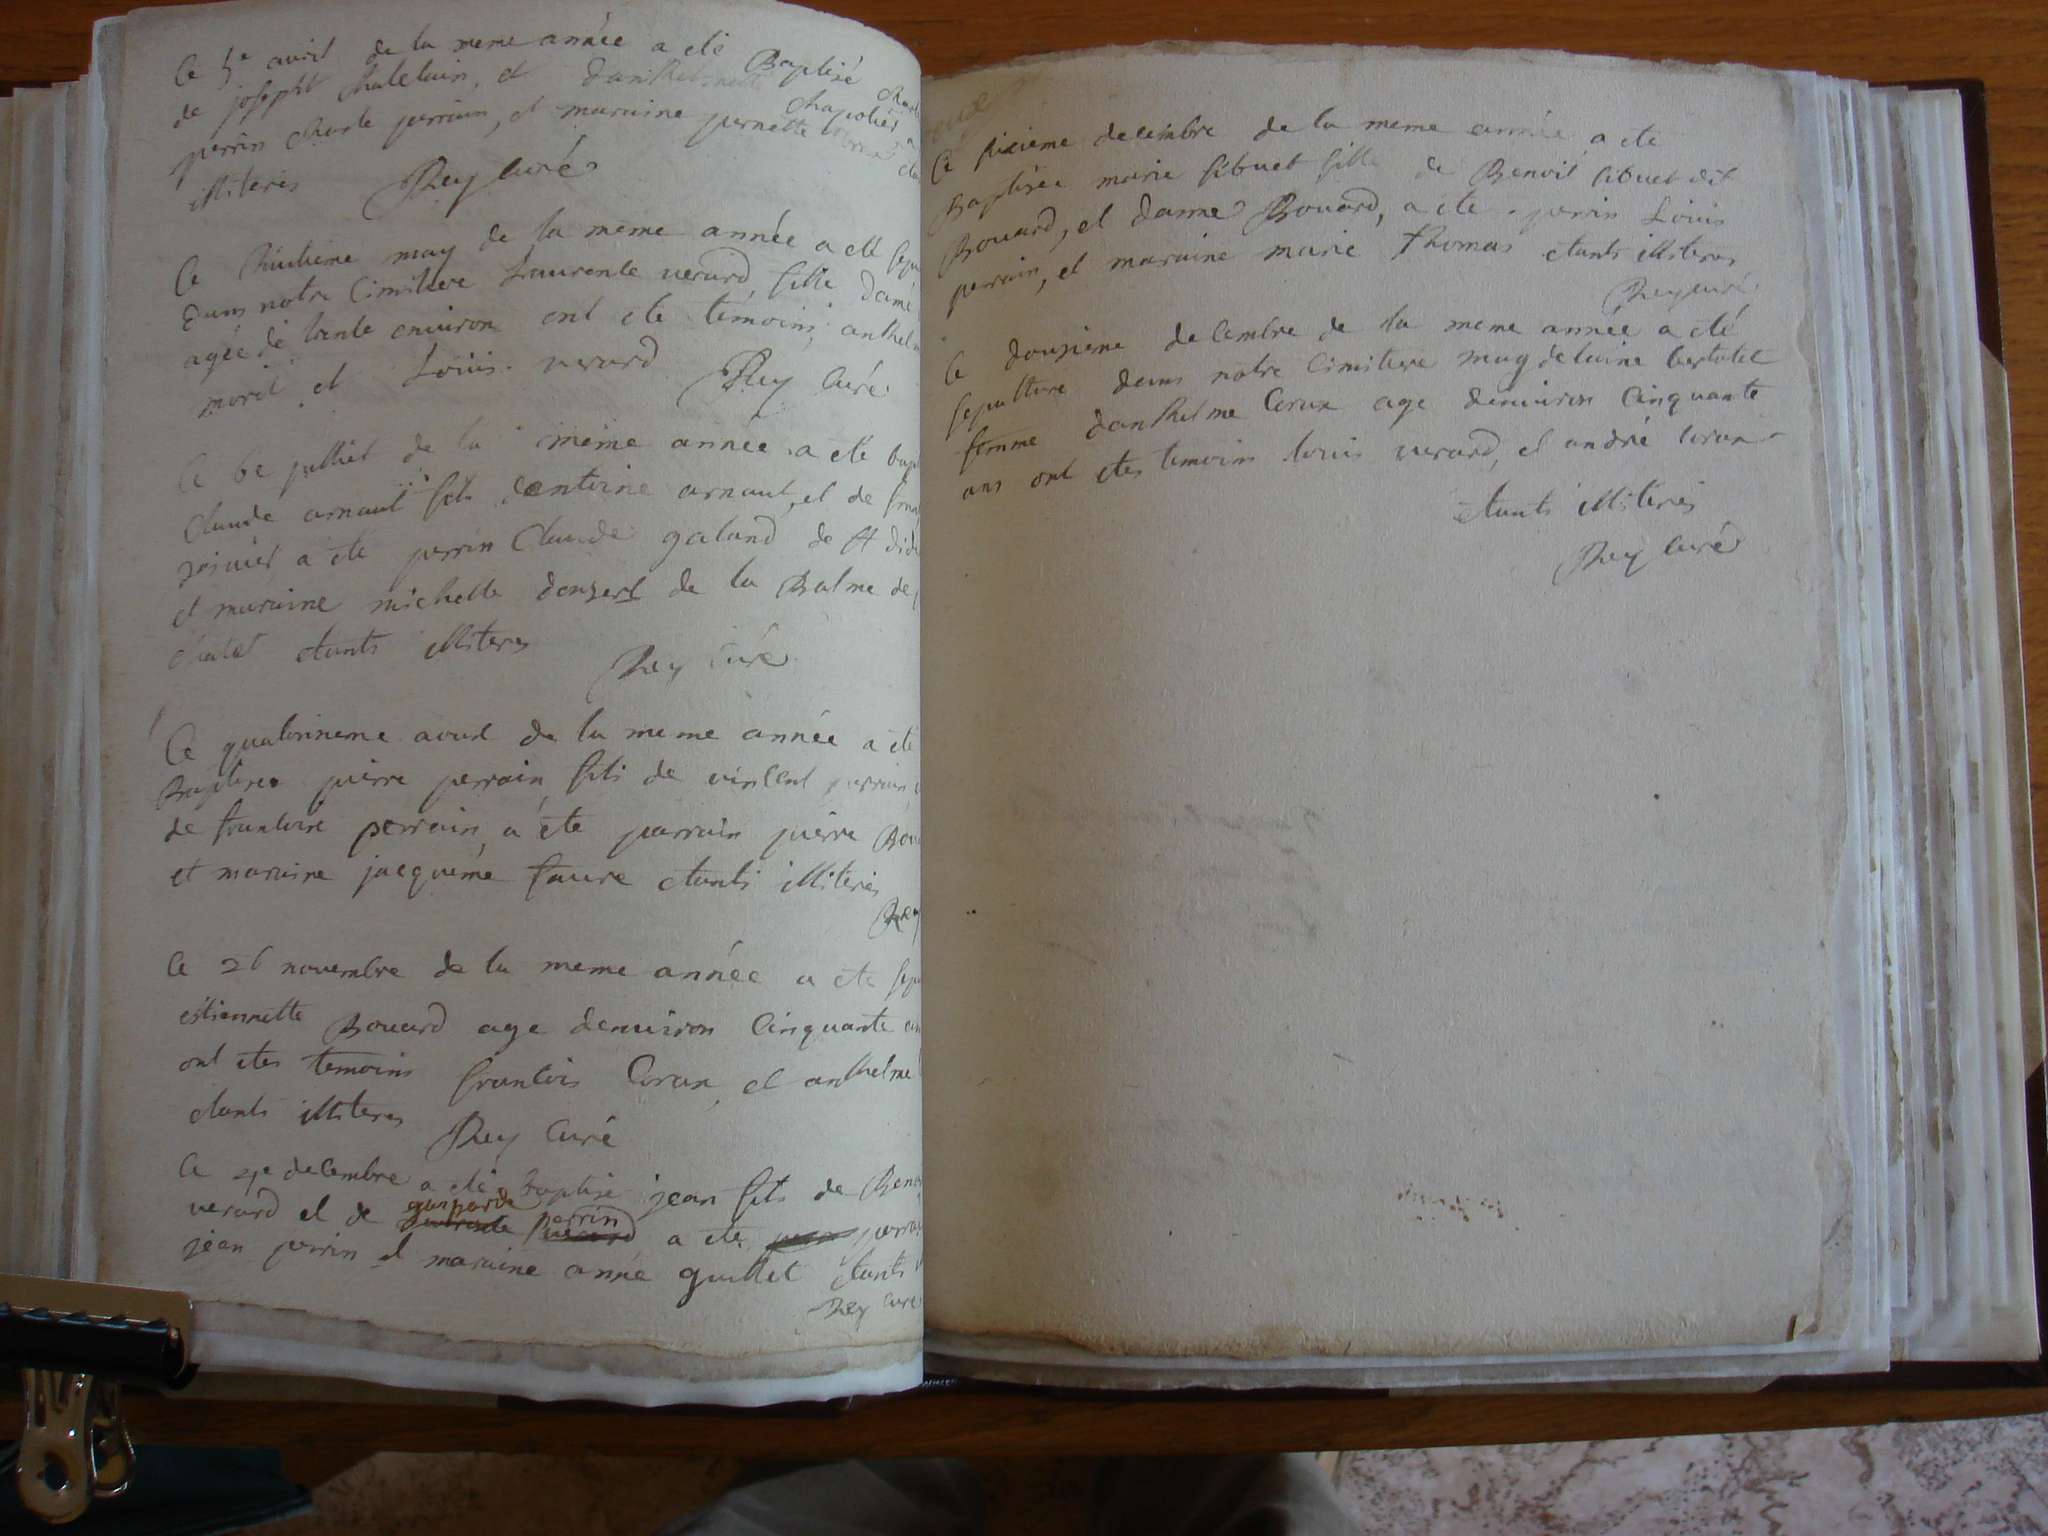 Ce 5e avril de la meme année a eté Baptisé
de joseph Chatelain, et d'anthelmette Chapolier
perrin Charle perrain, et maraine pernette
illiteres Rey Curé
Ce huitieme may de la meme année a eté sepu
dans notre Cimitiere Laurente verard fille damé
agée de trente environ ont ete temoins anthel
morit et Louis verard Rey Curé
Ce 6e julliet de la meme année a eté bap
Claude arnaut fils dantoine arnaut, et de fran
a ete perrin Claude galand de st didi
et maraine michelle donzert de la Balme de
etants illiteres Rey Curé
Ce quatorsieme aoust de la meme année a ete
Baptiser pierre perrain fils de vincent perrain
de francoise perrain, a ete parrain pierre Bou
et maraine jacqueme faure etants illiteres
Rey
Ce 26 novembre de la meme année a ete sepu
estiennette Bouard age denviron Cinquante an
ont etes temoins francois Coran, et anthelme
etants illiteres Rey Curé
Ce 4e decembre a eté baptisé jean fils de Beno
verard et de gasparde perrin a ete perra
jean perrin et maraine anne guillet etants
Rey Curé
Ce sixieme decembre de la meme année a ete
Baptisée marie sibuet fille de Benoit sibuet dit
Bouard, et danne Bouard, a ete perrin Louis
perrain, et maraine marie thomas etants illiteres
Rey curé
Ce douzieme decembre de la meme année a eté
sepulture dans notre Cimitiere magdelaine bertolet
femme danthelme Coran age denviron Cinquante
ans ont etes temoins louis verard, et andré Coran
etants illiteres
Rey Curé